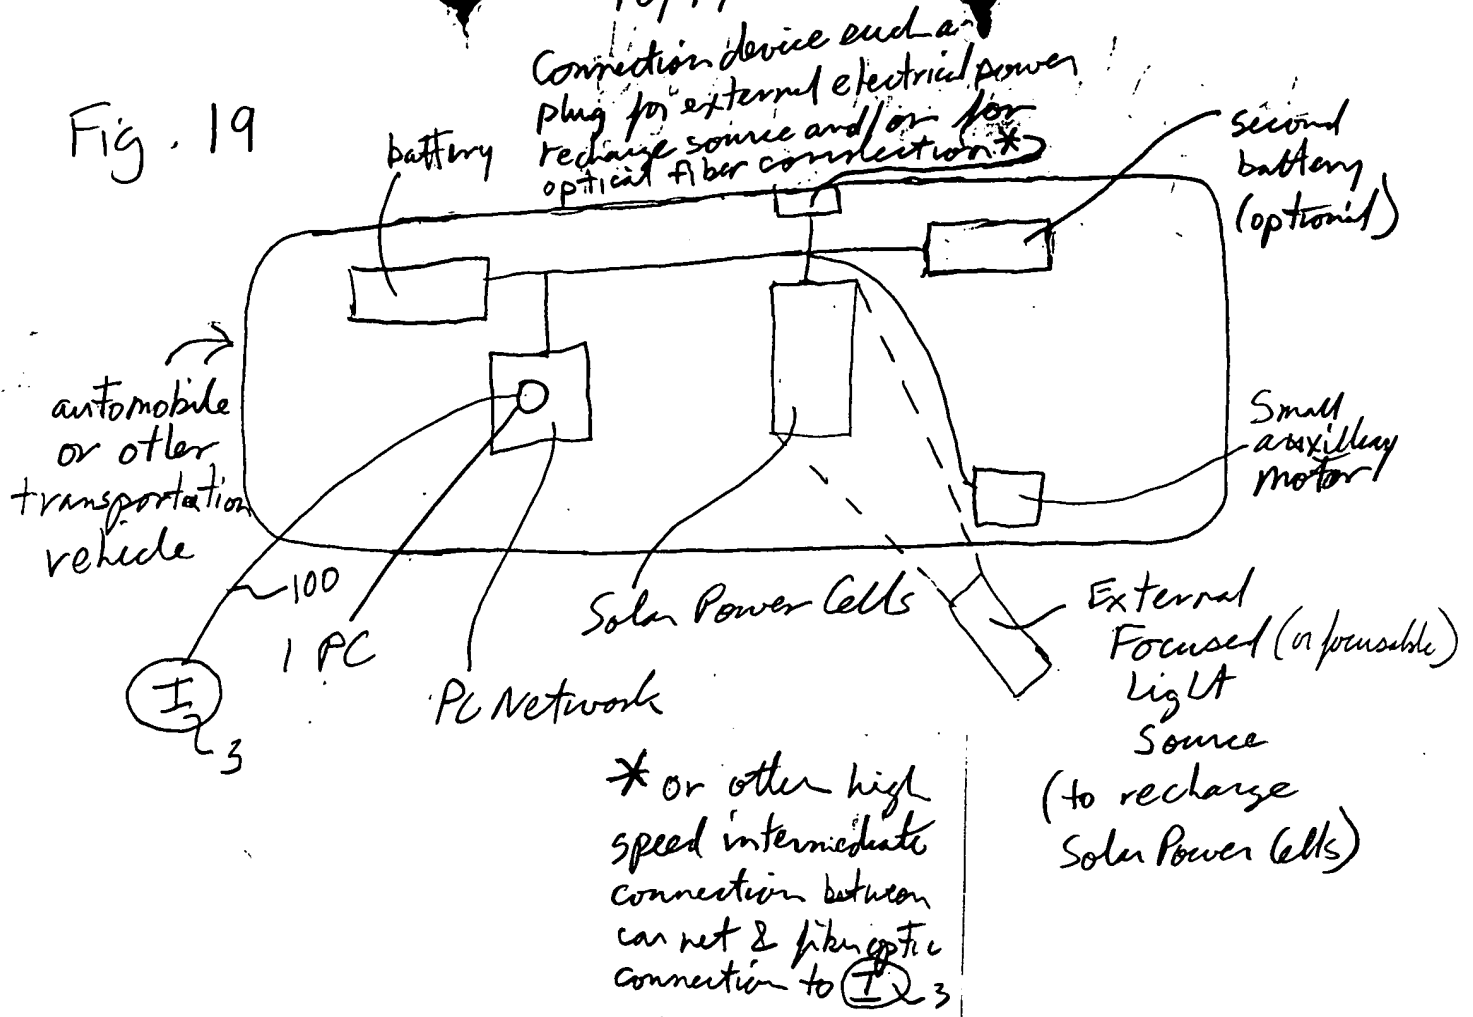 Connection device such as
plug for external electrical power
recharge source and/or for
optical fiber connection *
Fig. 19
battery
second
battery
(optional)
automobile
or other
transportation
vehicle
Small
auxillary
motor
100
1 PC
PC Network
Solar Power Cells
External
Focused (or focusable)
Light
Source
(to recharge
Solar Power Cells)
I
3
* or other high
speed intermediate
connection between
car net & fiber optic
connection to I 3